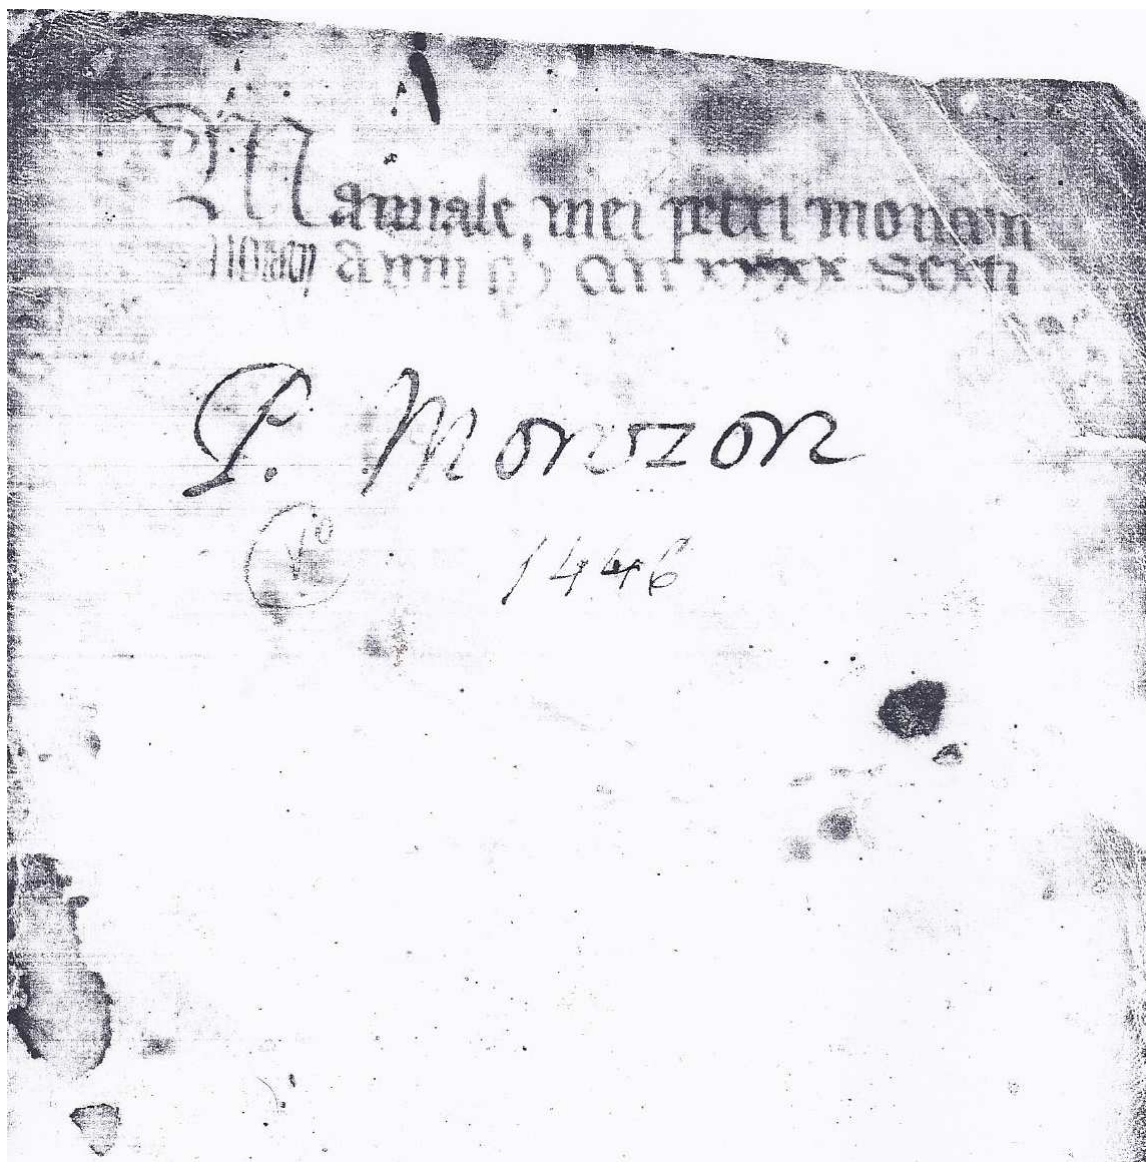 Manuale, mei petri monçon
Notarii Anni M CCCC xxxx Sexti
P. Monzon
1446